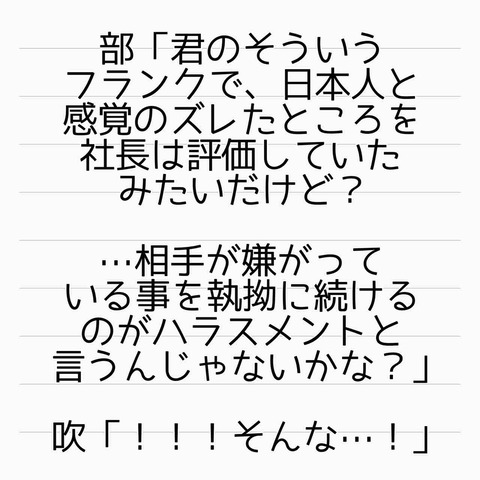 部「君のそういう
フランクで、日本人と
感覚のズレたところを
社長は評価していた
みたいだけど？
…相手が嫌がって
いる事を執拗に続ける
のがハラスメントと
言うんじゃないかな？」
吹「！！！そんな…！」